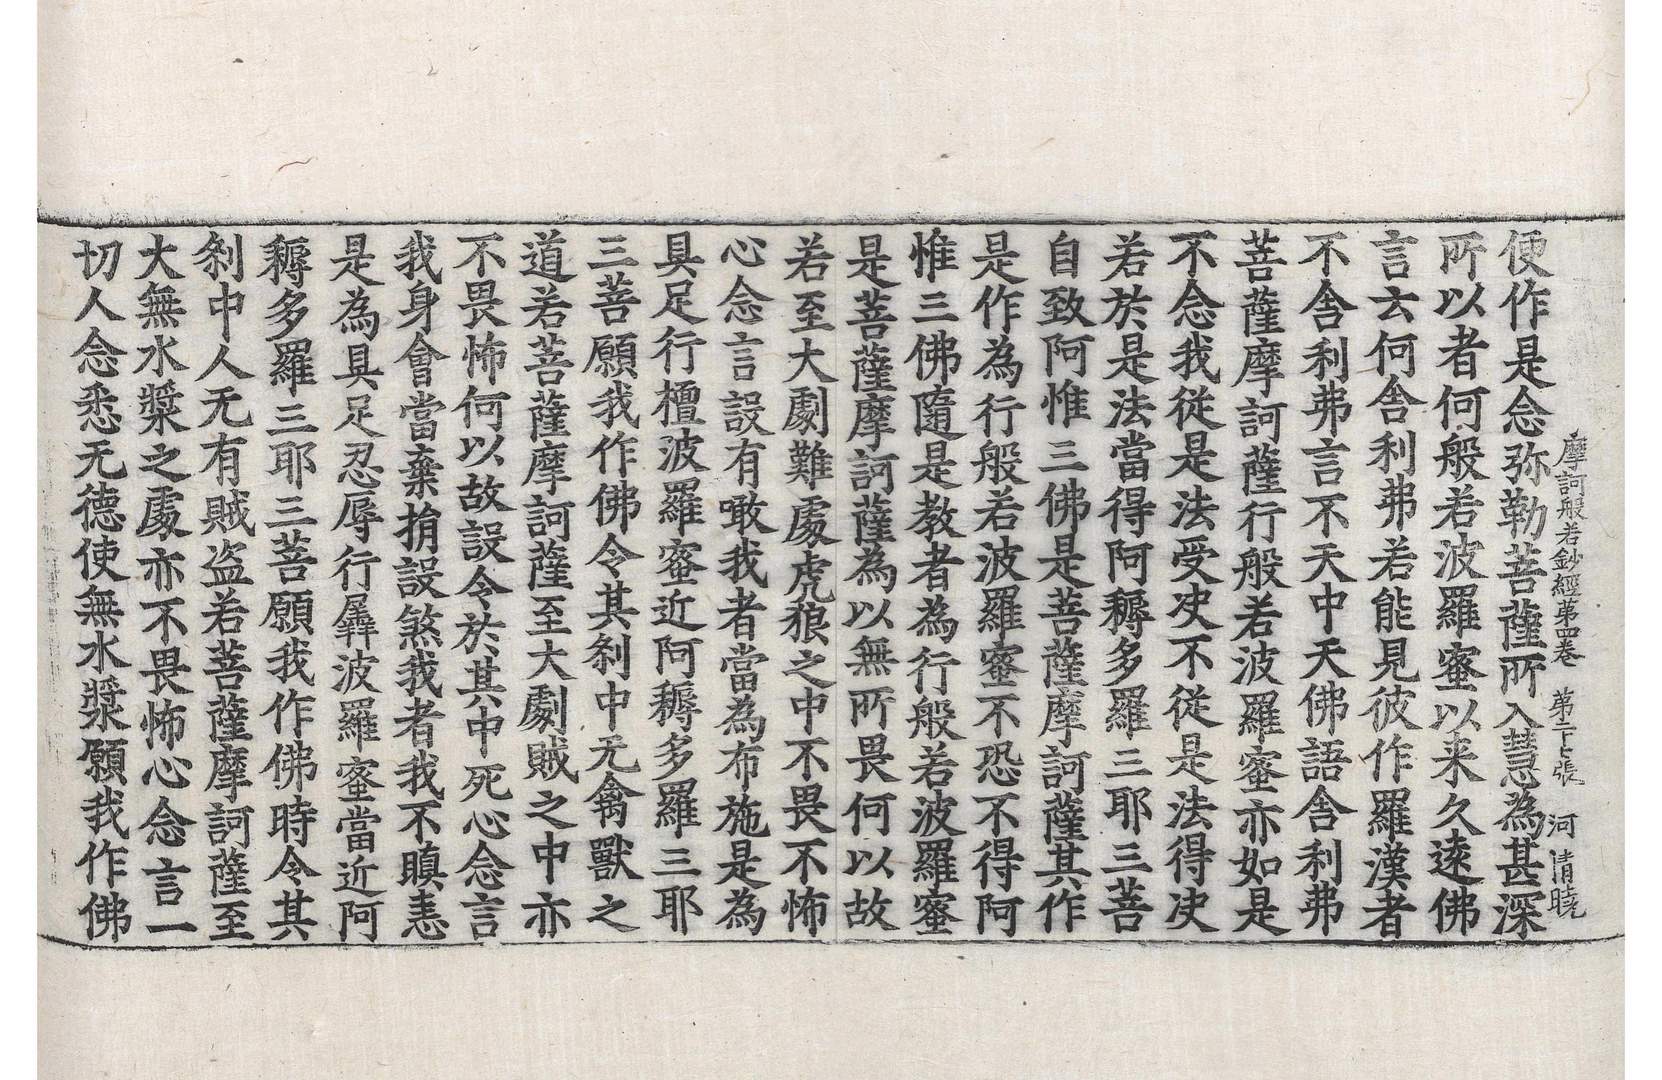 摩訶般若鈔經第四卷 第二十七張 河 清曉
便作是念弥勒菩薩所入慧為甚深
所以者何般若波羅蜜以来久遠佛
言云何舎利弗若能見彼作羅漢者
不舎利弗言不天中天佛語舎利弗
菩薩摩訶薩行般若波羅蜜亦如是
不念我従是法受决不従是法得决
若於是法當得阿耨多羅三耶三菩
自致阿惟三佛是菩薩摩訶薩其作
是作為行般若波羅蜜不恐不得阿
惟三佛隨是教者為行般若波羅蜜
是菩薩摩訶薩為以無所畏何以故
若至大劇難處虎狼之中不畏不怖
心念言設有噉我者當為布施是為
具足行檀波羅蜜近阿耨多羅三耶
三菩願我作佛令其刹中无禽獸之
道若菩薩摩訶薩至大劇賊之中亦
不畏怖何以故設令於其中死心念言
我身會當棄捐設煞我者我不瞋恚
是為具足忍辱行羼波羅蜜當近阿
耨多羅三耶三菩願我作佛時令其
刹中人无有賊盗若菩薩摩訶薩至
大無水漿之處亦不畏怖心念言一
切人念悉无德使無水漿願我作佛